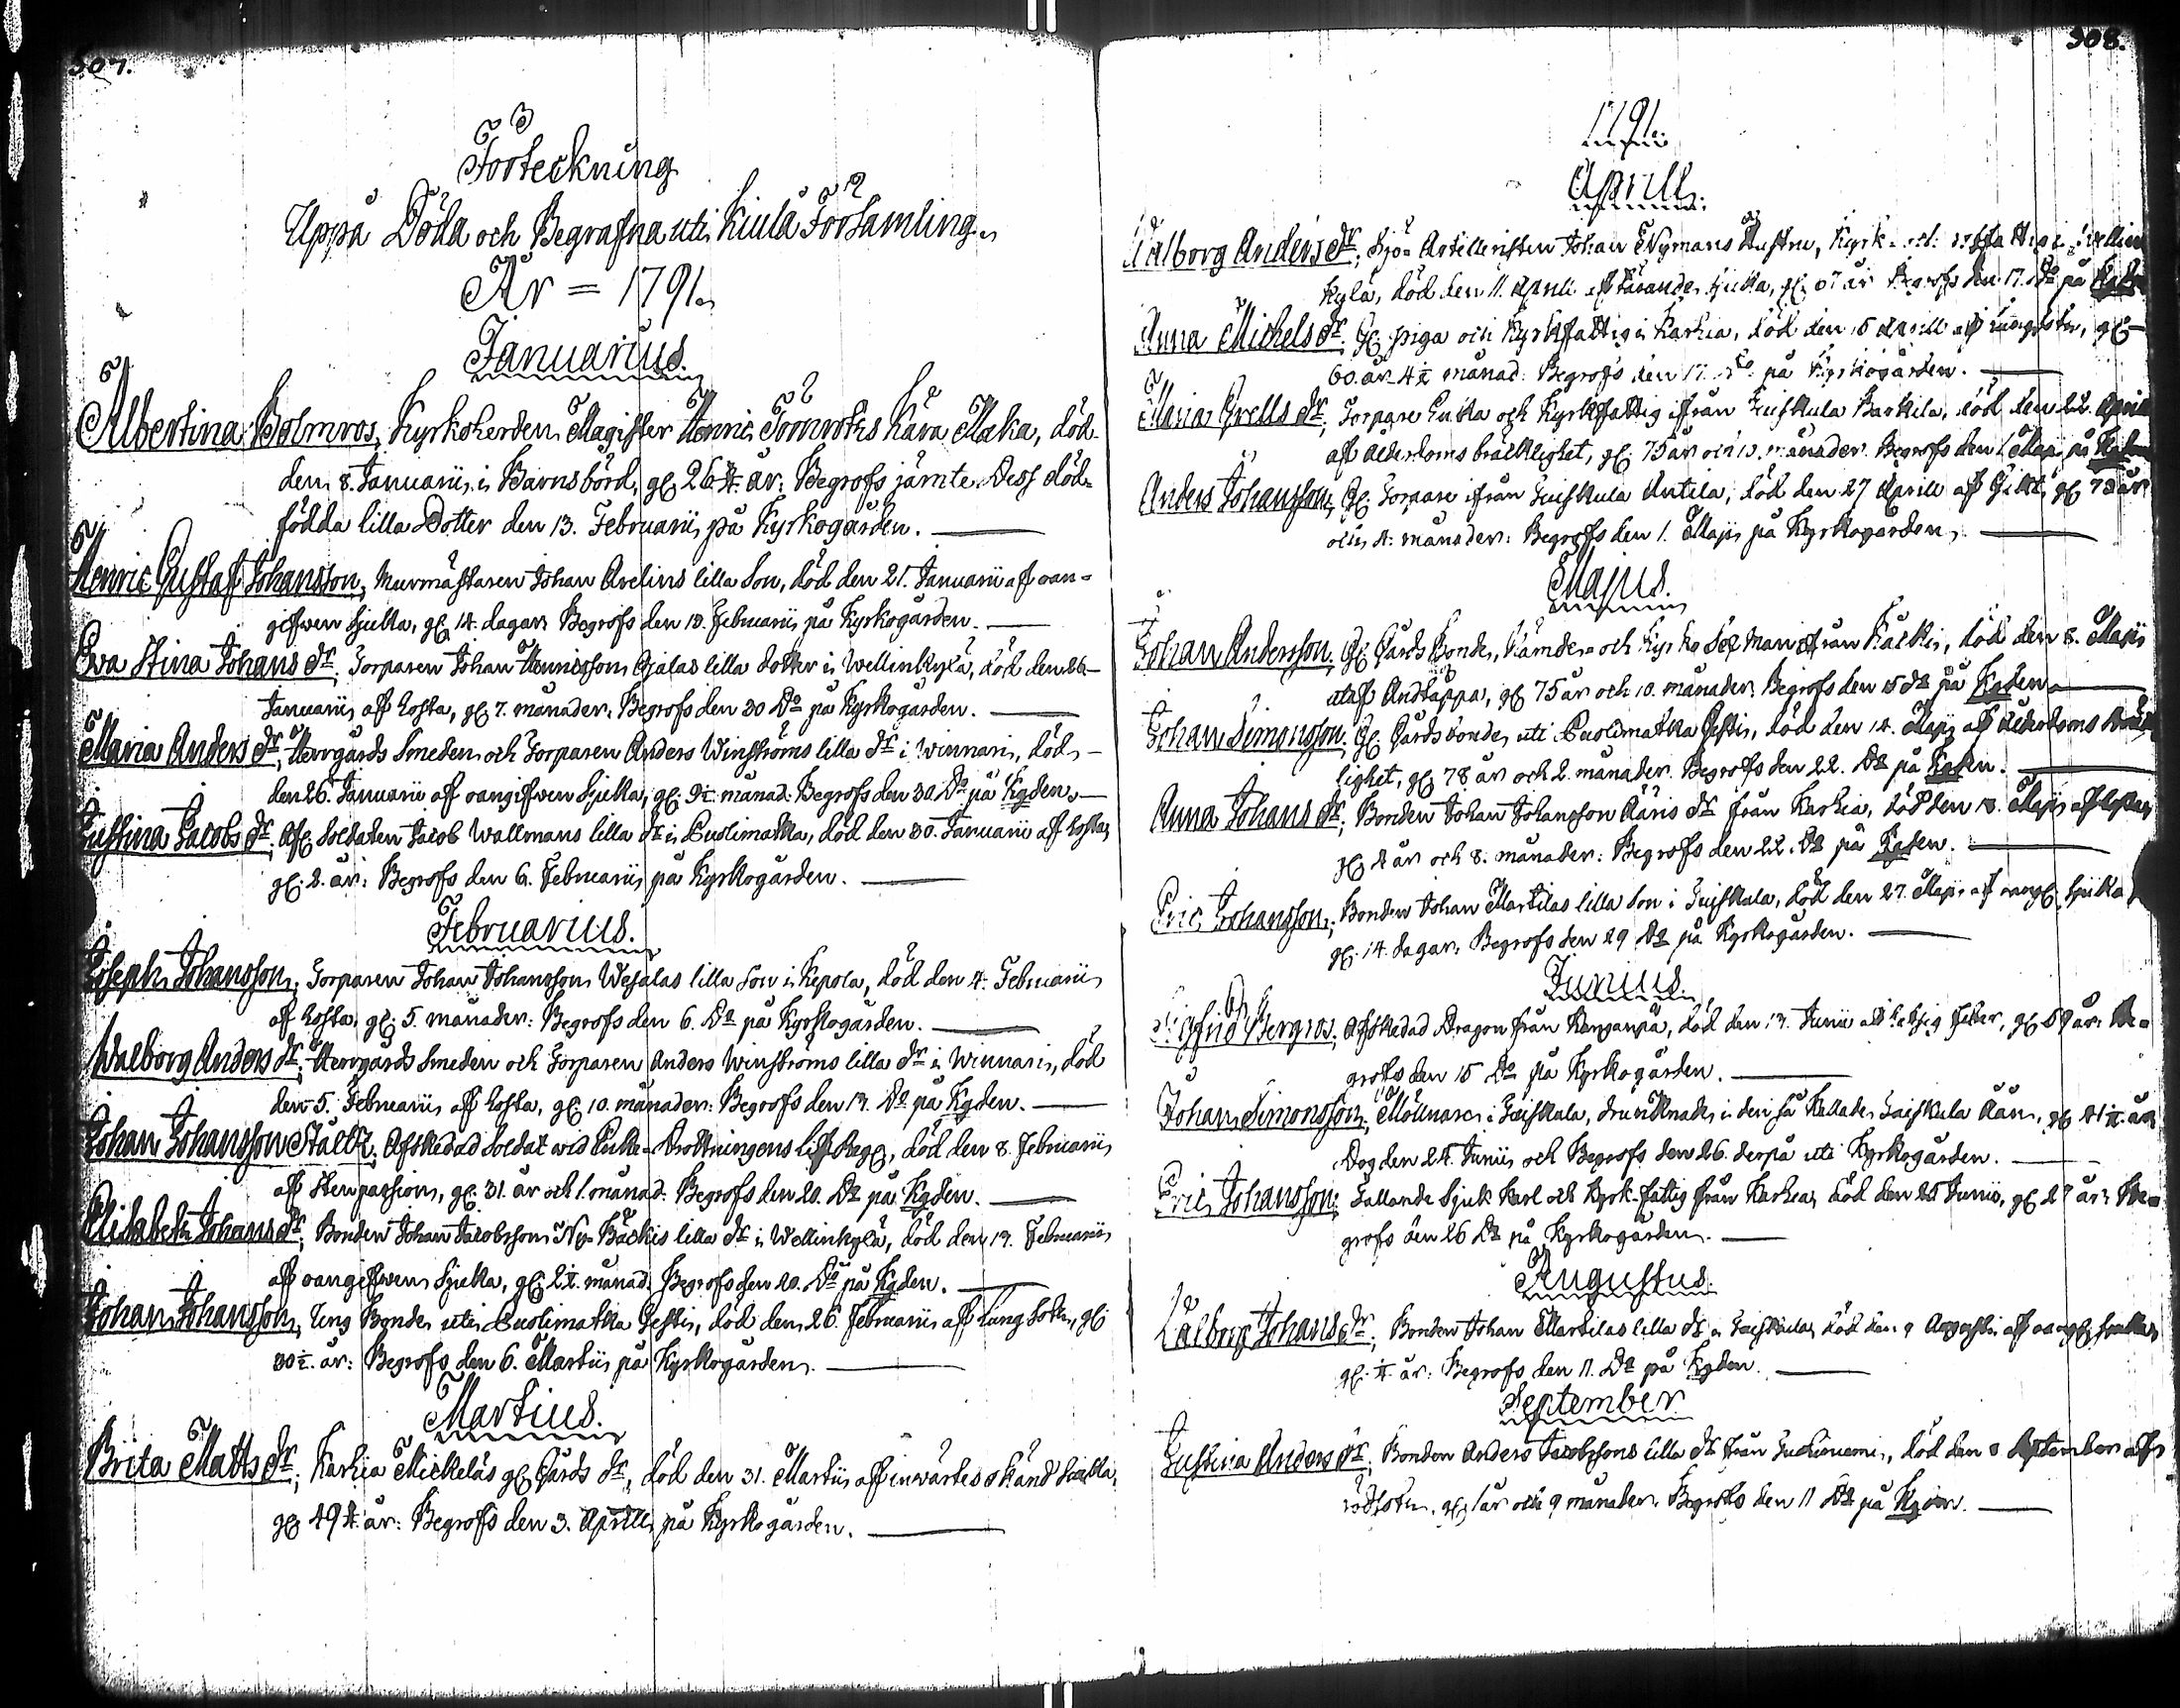 307.
Förteckning
Uppå Döda och Begrafna uti Kiula Församling
År = 1791.
Januarius.
Albertina Bolmros, Kyrkoherden Magister Henric Tornroths kära Maka, död
den 8. Januarii i Barnsbörd, gl. 26 är: Begrofs jämte Dess död-
födda lilla Dotter den 13. Februarii, på Kyrkogården.
Henric Gustaf Johansson, Murmästaren Johan Arelins lilla Son, död den 21. Januarii af oan-
gifwen Sjukka, gl. 14. dagar: Begrofs den 13. Februarii på Kyrkogården.
Eva Stina Johans dr, Torparen Johan Henricsson Ojalas lilla dotter i Wellinkylä, död den 26
Januarii af hosta, gl. 7. månader: Begrofs den 30 Do på Kyrkogården.
Maria Anders dr, Herrgårds Smeden och Torparen Anders Winströms lilla dr i Winnari, död
den 26. Januarii af oangifwen Sjukka, gl. månad: Begrofs den 30 Do på Kgden.
Justina Jacobs dr, Afl. Soldaten Jacob Wallmans lilla dr i Puolimatka, död den 30. Januarii af hosta
gl. 2. år: Begrofs den 6. Februarii på Kyrkogården.
Februarius.
Joseph Johansson, Torparen Johan Johansson Wesalas lilla Son i Kepola, död den 4. Februarii
af hosta, gl. 5. månader: Begrofs den 6. Do på Kyrkogården.
Walborg Anders dr, Herrgårds Smeden och Torparen Anders Winströms lilla dr i Winnari, död
den 5. Februarii af hosta, gl. 10. månader: Begrofs den 13. Do på Kgden.
Johan Johansson Stålt, Afskedad Soldat wid Enke-Drottningens Lif Reg, död den 8. Februarii
af Stenpassion, gl. 31. år och 1. månad: Begrofs den 20. Do på Kgden.
Elisabeth Johans dr, Bonden Johan Jacobsson Ny-Bäckis lilla dr i Wellinkylä, död den 13. Februarii
af oangifwen Sjukka, gl. månad: Begrofs den 20. Do på Kgden.
Johan Johansson, Ung Bonde uti Puolimatka Jesti, död den 26. Februarii af Lungsoten, gl.
år: Begrofs den 6. Martii på Kyrkogården.
Martius.
Brita Matts dr, Karhia Mickeläs gl. Gårds dr, död den 31. Martii af inwärtes okänd Sjukka,
gl. 49 år: Begrofs den 3. Aprill på Kyrkogården.
308.
1791.
Aprill.
Walborg Anders dr, Sjö-Artilleristen Johan Nymans Hustru, Kyrk-
Kylä, död den 11. Aprill af tärande Sjukka, gl. 67 år Begrofs den 17. Do på Kgden
Anna Michels dr, Gl. piga och Kyrkfattig i Karhia, död den 15 Aprill af Lungsoten, gl.
60. år månad: Begrofs den 17. Do på Kyrkogården.
Maria Grells dr, Torpare Enka och Kyrkfattig ifrån Juskula Barkila, död den 22. Aprill
af ålderdoms bräcklighet, gl. 75 år och månader. Begrofs den 1 Maji på Kgden
Anders Johansson, Gl. Torpare ifrån Juskula Antila, död den 27 Aprill af Gikt, gl. 73 år
och månader: Begrofs den 1. Maji på Kyrkogården.
Majus.
Johan Andersson, Gl. Gårds Bonde, Nämde- och Kyrko Sex Man ifrån Kälkis, död den 8. Maji
utaf Andtäppa, gl. 75 år och 10. månader: Begrofs den 15 do på Kgden
Johan Simonsson, Gl. Gårds bonde uti Puolimatka Jesti, död den 14. Maji af ålderdoms bräck
lighet, gl. 78 år och 2. månader. Begrofs den 22. Do på Kgden.
Anna Johans dr, Bonden Johan Johansson Käris dr från Karhia, död den 18. Maji af hosta
gl. 2 år och 8. månader: Begrofs den 22. Do på Kgden.
Eric Johansson, Bonden Johan Martilas lilla Son i Juskula, död den 27. Maji af oangl. Sjukka
gl. 14 dagar: Begrofs den 29 Do på Kyrkogården.
Junius.
Sigfrid Bergros, Afskedad Dragon från Kanganpä, död den 13. Junii af hetsig feber, gl. 59 år: Be-
grofs den 15 Do på Kyrkogården.
Johan Simonsson, Möllnare i Juskula, drunknade i den så kallade Juskula Kån, gl. år
Dog den 24. Junii och Begrofs den 26. derpå uti Kyrkogården.
Eric Johansson, Fallande Sjuk karl och Kyrk-fattig från Karhia, död den 25 Junii, gl. 27 år: Be-
grofs den 26 Do på Kyrkogården.
Augustus.
Walborg Johans dr, Bonden Johan Martilas lilla dr i Juskula, död den 9 Augusti af oangl. Sjukka
gl. år: Begrofs den 11. Do på Kgden.
September
Justina Anders dr, Bonden Anders Jacobssons lilla dr från Juckinemi, död den 8 September af
rödsoten, gl. 1 år och 9 månader. Begrofs den 11 Do på Kgden.